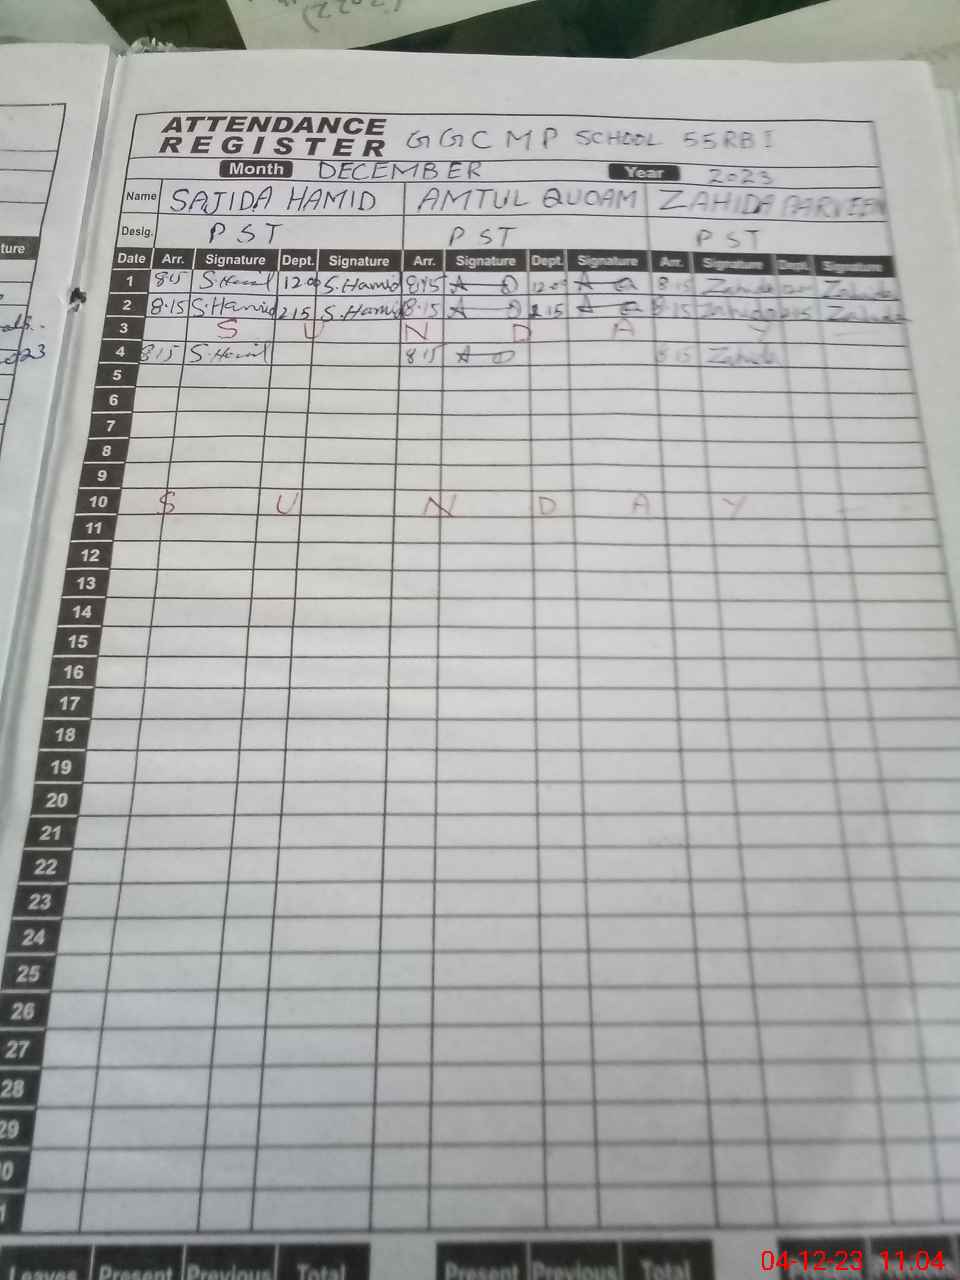 ATTENDANCE REGISTER GGCMP SCHOOL 55RB I
Month DECEMBER Year 2023
Name SAJIDA HAMID AMTUL QUOAM ZAHIDA PARVEEN
Desig. PST PST PST
ture Date Arr. Signature Dept. Signature Arr. Signature Dept. Signature Arr. Signature Dept. Signature
1 815 S.Hamid 1200 S.Hamid 8:15 A 12:00 A 8:15 Zahida Zahida
2 8.15 S.Hamid 215 S.Hamid 8.15 A 2.15 A 8.15 Zahida 2.15 Zahida
3 S U N D A Y
2023 4 8.15 S.Hamid 8.15 A 8.15 Zahida
5
6
7
8
9
10 S U N D A Y
11
12
13
14
15
16
17
18
19
20
21
22
23
24
25
26
27
28
29
0
1
Leaves Present Previous Total Present Previous Total
04-12-23 11:04